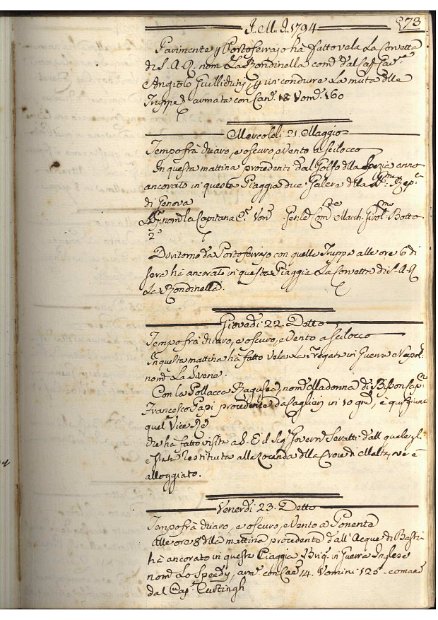 A. M. D. 1794 73
Parimente p Portoferraio ha fatto vela La Corvetta
di S. A. R. nom. La Rondinella com. dal
e Angiolo p ivi condurre La muta delle
Truppe armata con Can. 18 Uom. 160
Mercoledi: 21 Maggio
Tempo frà chiaro, e oscuro, e Vento a scilocco
In questa mattina procedenti dal Golfo della Spezia anno
ancorato in questa Piaggia due Galere della
di Genova
La p nom. La Capitana
2.
Di ritorno da Portoferraio con quelle Truppe alle ore 6 di
sera hà ancorato in questa Piaggia La Corvetta di S. A. R.
La Rondinella
Giovedi: 22 Detto
Tempo frà chiaro, e oscuro, e Vento a scilocco
In questa mattina hà fatto Vela La Fregata in Guerra Napol.
nom. La Sirena
Con la Pollacca Ragusea nom. La Madonna di
Francesco Papi procedente da Cagliari in 10 g.
quel Vice Re
che hà fatto visita a S. E. il Sig. Govern. dall quale gli
è stata restituita alla Locanda della Croce di Malta, ove è
alloggiato.
Venerdi: 23 Detto
Tempo frà chiaro, e oscuro, e Vento a Ponente
Alle ore 8 della mattina procedente dall'Acque di Bastia
hà ancorato in questa Piaggia Brig. in Guerra Inglese
nom. Lo Speedy, arm. con Can. 14. Uomini 125 coman.
dal Cap.